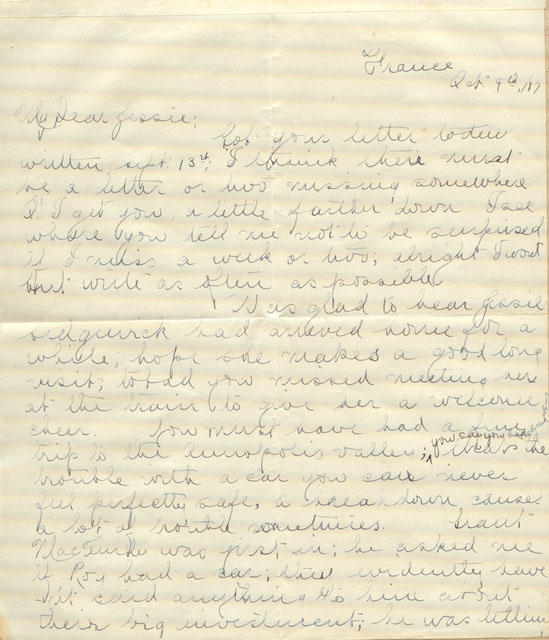 France
Oct. 9th, /17
My Dear Jessie;
Got your letter today
written Sept. 13th; I think there must
be a letter or two missing somewhere
I get you, a little farther down I see
where you tell me not to be surprised
if I miss a week or two; alright I wont
but write as often as possible
Was glad to hear Jessie
Sedgwick had arrived home for a
while; hope she makes a good long
visit; to bad you missed meeting her
at the train to give her a welcome
cheer. You must have had a fine
trip to the Annapolis valley; you say you had
thats the
trouble with a car you can never
feel perfectly safe, a breakdown causes
a lot of trouble sometimes. Grant
was just in; he asked me
if Roy had a car; they evidently have
n't said anything to him about
there big investment; he was telling